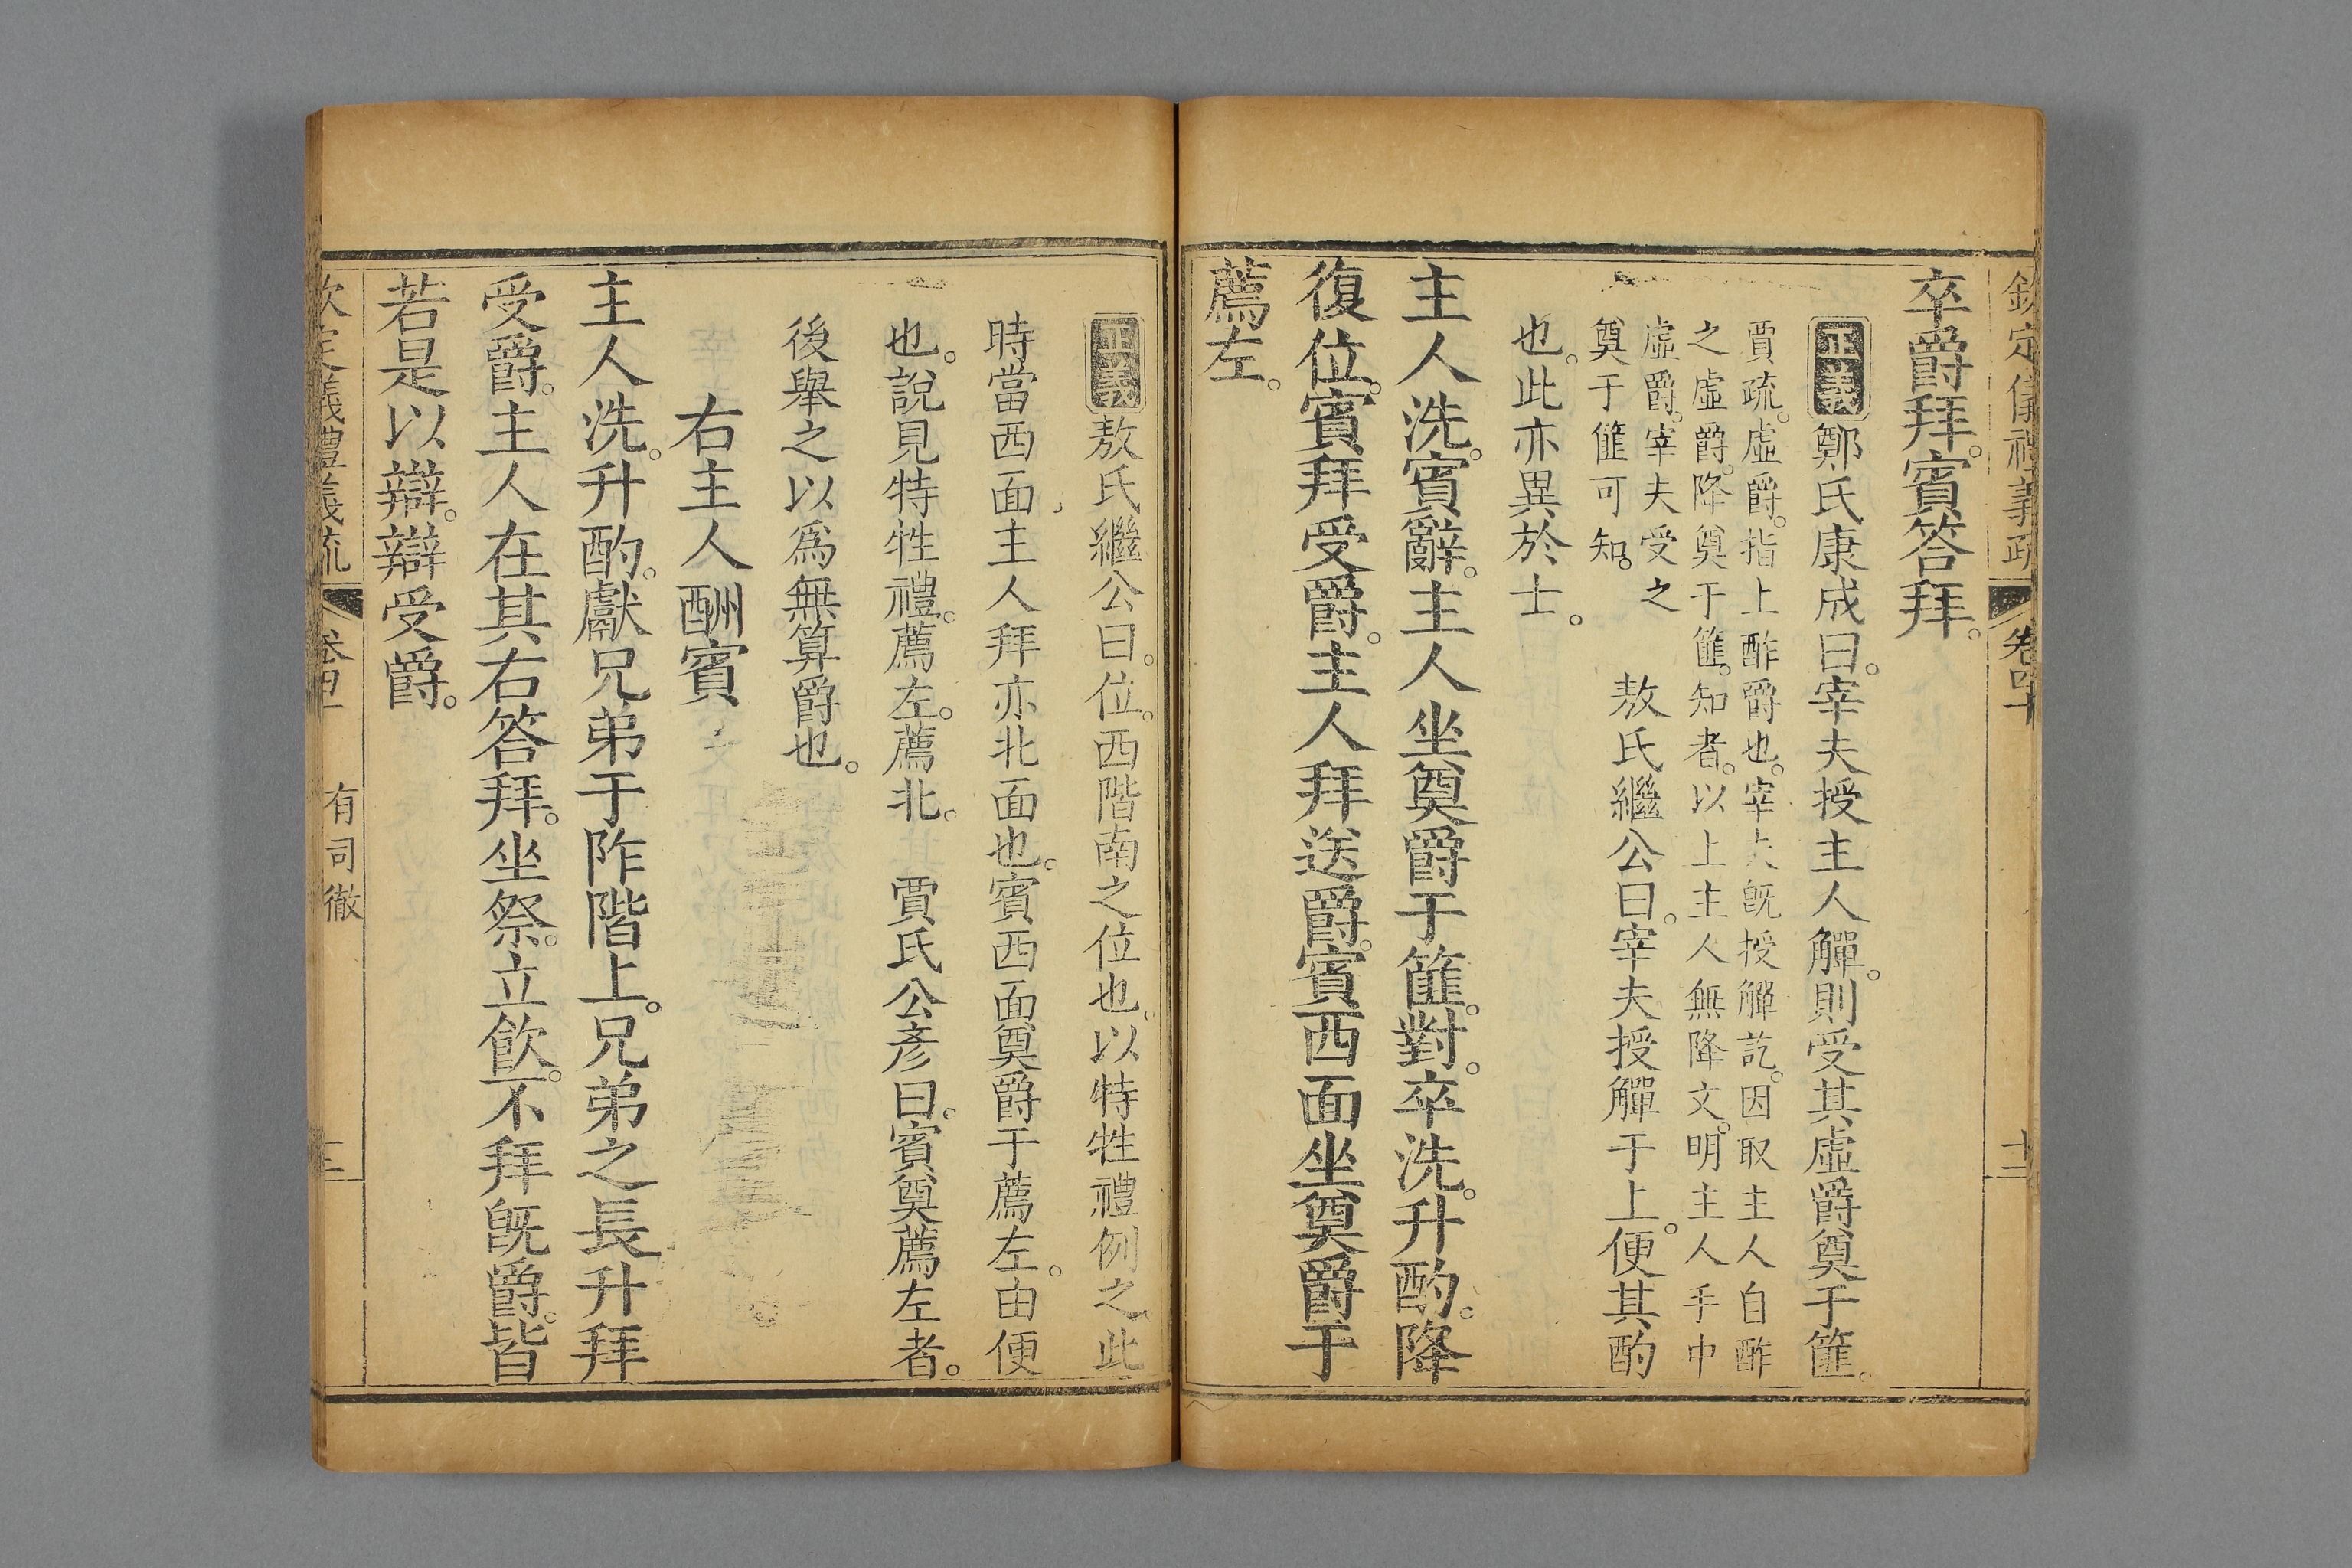 欽定儀禮義疏 卷四十 十二
卒爵拜。賓答拜。
正義 鄭氏康成曰。宰夫授主人觶。則受其虛爵奠于篚。
賈疏。虛爵。指上酢爵也。宰夫旣授觶訖。因取主人自酢
之虛爵。降奠于篚。知者。以上主人無降文。明主人手中
虛爵。宰夫受之
奠于篚可知。
敖氏繼公曰。宰夫授觶于上。便其酌
也。此亦異於士。
主人洗。賓辭。主人坐奠爵于篚。對。卒洗。升酌。降
復位。賓拜受爵。主人拜送爵。賓西面坐奠爵于
薦左。
正義 敖氏繼公曰。位。西階南之位也。以特牲禮例之此
時當西面主人拜亦北面也。賓西面奠爵于薦左。由便
也。說見特牲禮。薦左。薦北。 賈氏公彥曰。賓奠薦左者。
後舉之以爲無算爵也。
右主人酬賓
主人洗。升酌。獻兄弟于阼階上。兄弟之長升拜
受爵。主人在其右答拜。坐祭。立飮。不拜旣爵。皆
若是以辯。辯受爵。
欽定儀禮義疏 卷四十 有司徹 十二